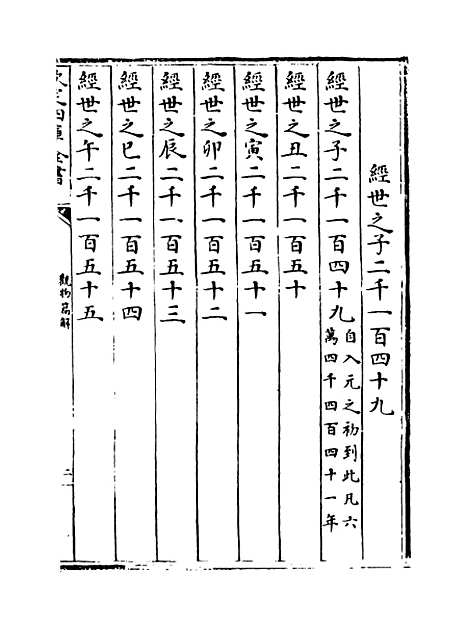 經世之子二千一百四十九
經世之子二千一百四十九自入元之初到此凡六萬四千四百四十一年
經世之丑二千一百五十
經世之寅二千一百五十一
經世之卯二千一百五十二
經世之辰二千一百五十三
經世之巳二千一百五十四
經世之午二千一百五十五
欽定四庫全書
觀物篇解
二